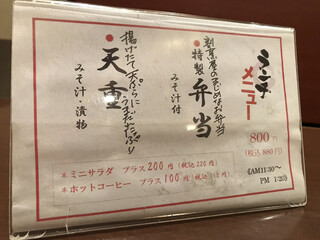 ランチ
メニュー
800円
(税込880円)
(AM11:30〜
PM 1:20)
割烹屋のまじめなお弁当
●特製弁当
みそ汁付
揚げたて天ぷらに
●天重
みそ汁・漬物
*ミニサラダ プラス200円(税込220円)
*ホットコーヒー プラス100円(税込